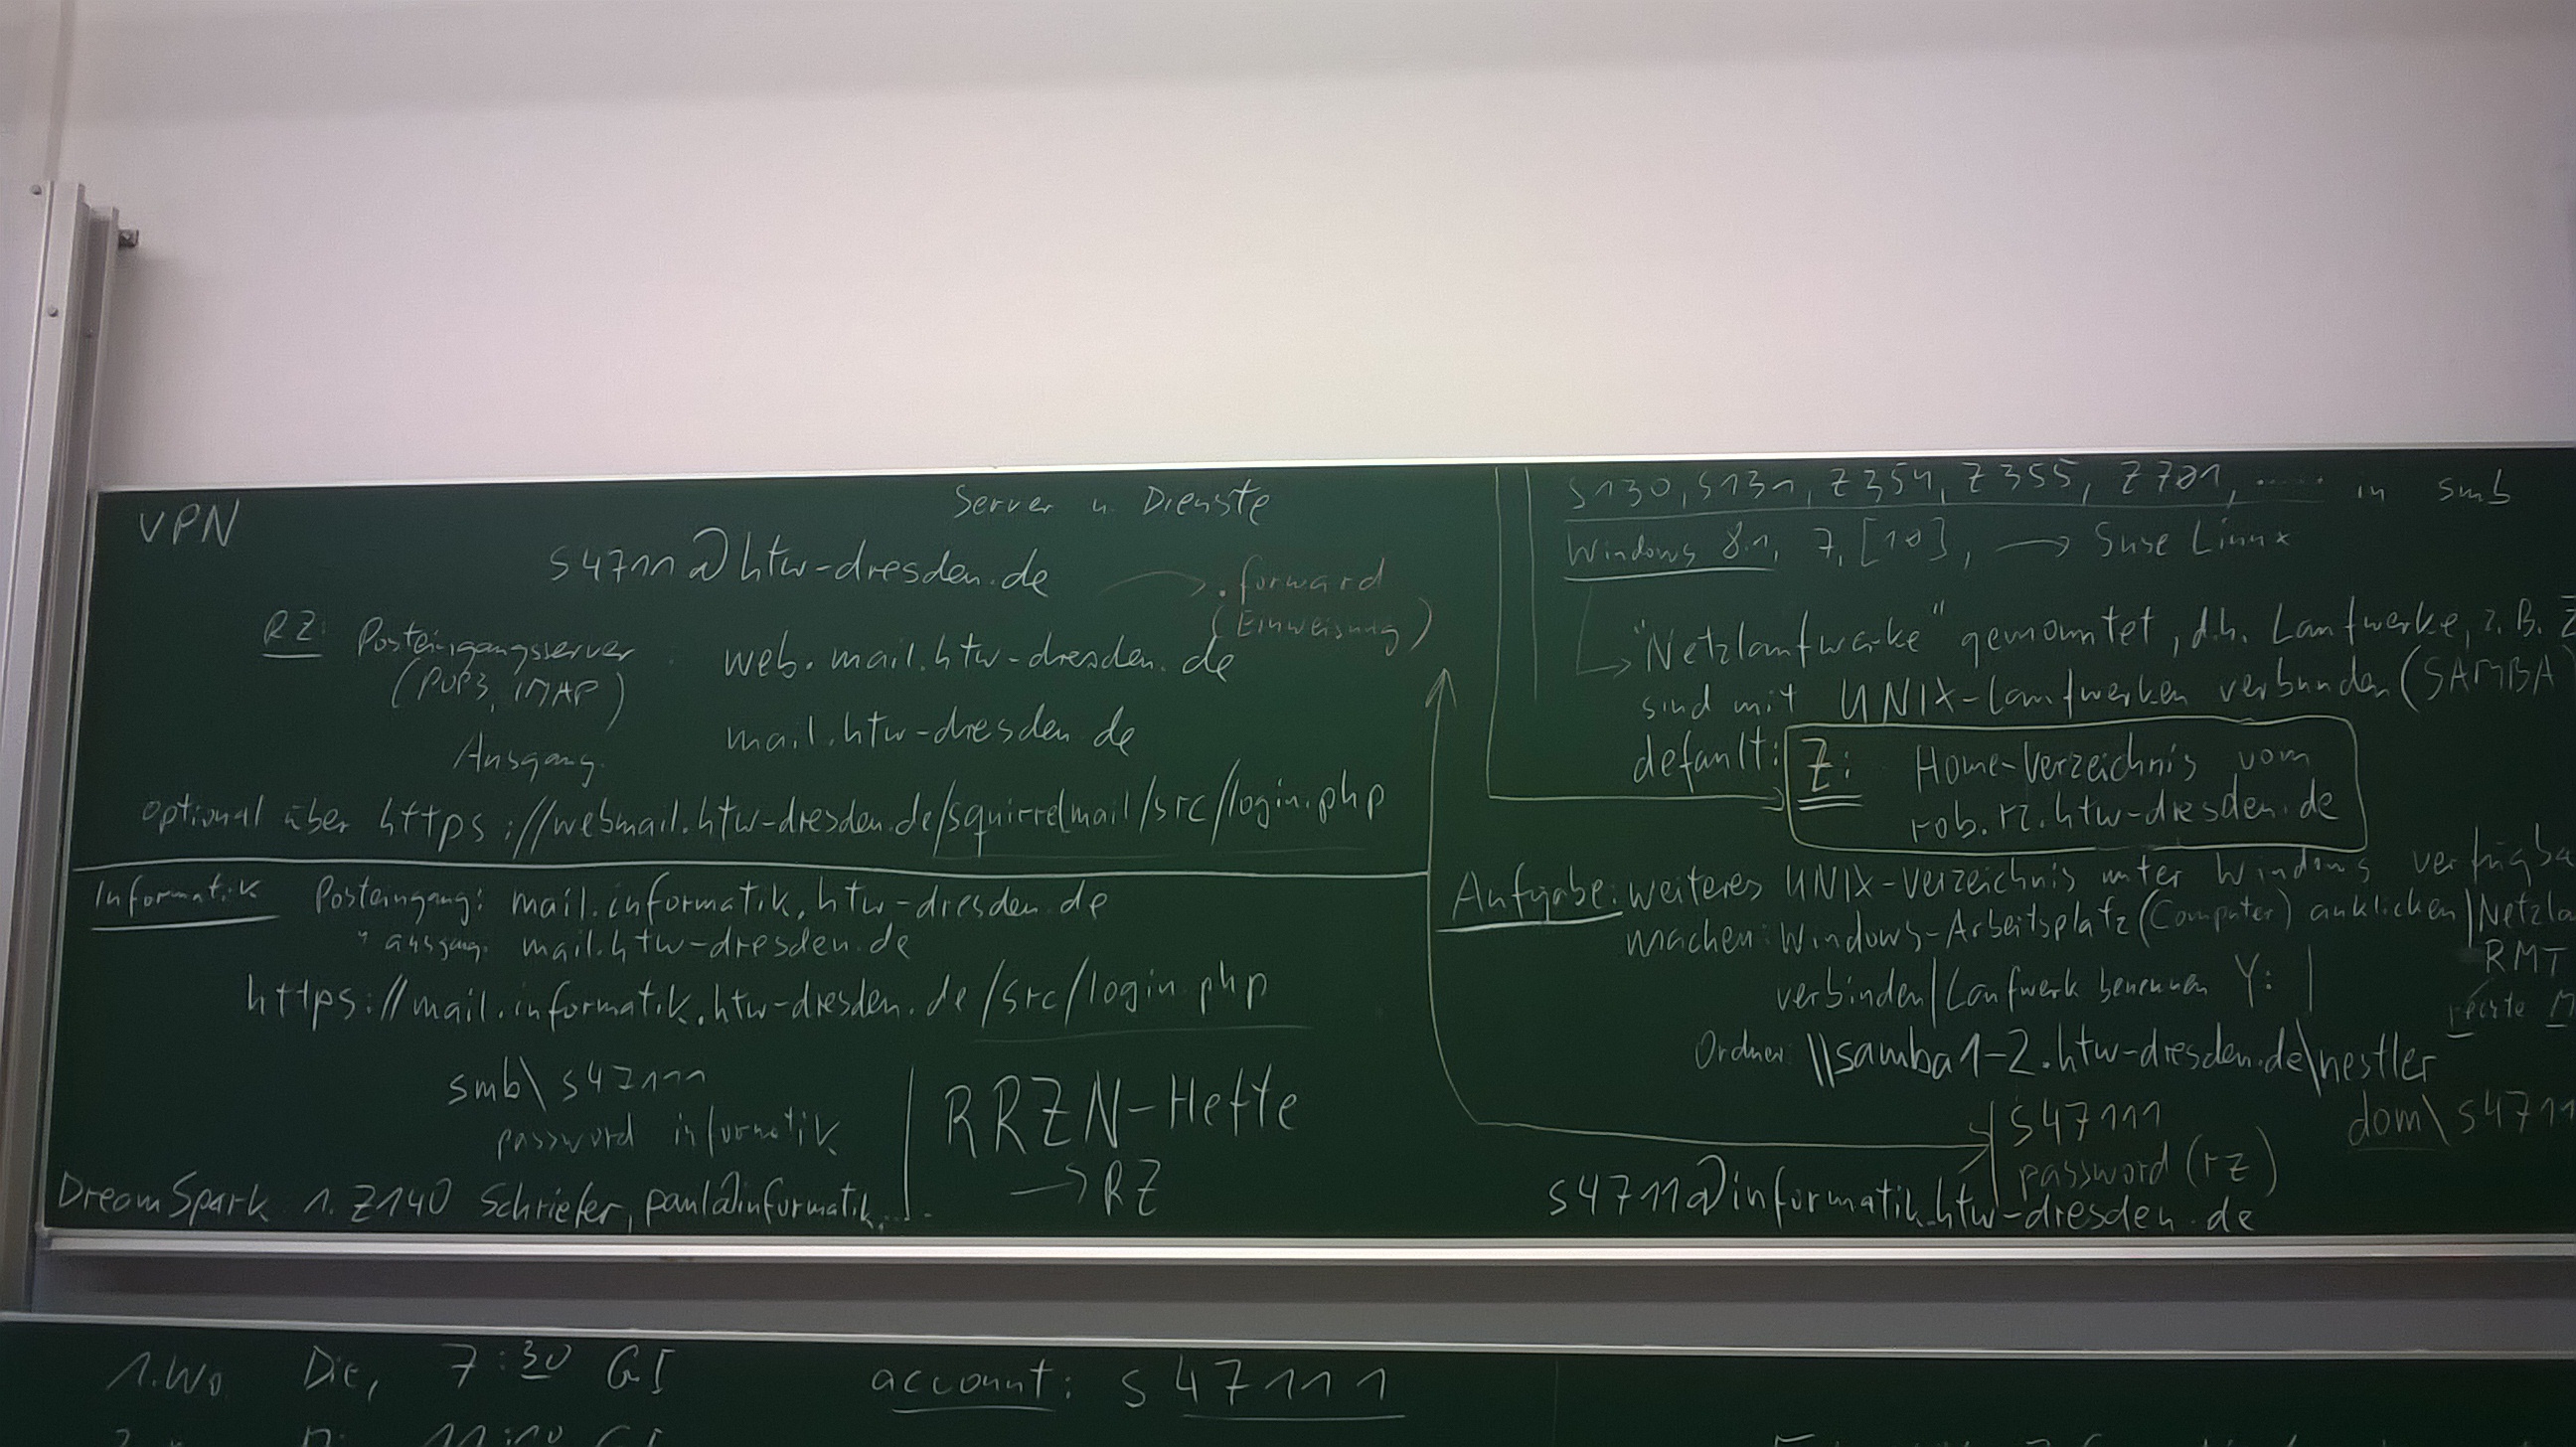 VPN
Server u. Dienste
s4711@htw-dresden.de
.forward
(Einweisung)
RZ: Posteingangsserver : web.mail.htw-dresden.de
(POP3, IMAP)
Ausgang. mail.htw-dresden.de
optional über https://webmail.htw-dresden.de/squirrelmail/src/login.php
Informatik Posteingang: mail.informatik.htw-dresden.de
" ausgang. mail.htw-dresden.de
https://mail.informatik.htw-dresden.de/src/login.php
smb\s47111
password informatik
RRZN-Hefte
→ RZ
DreamSpark 1. Z140 Schriefer, paul@informatik....
S130, S131, Z354, Z355, Z701, ...... in smb
Windows 8.1, 7, [10], → Suse Linux
"Netzlaufwerke" gemountet, d.h. Laufwerke, z.B. Z
sind mit UNIX-Laufwerken verbunden (SAMBA)
default: Z: Home-Verzeichnis vom
rob.rz.htw-dresden.de
Aufgabe: weiteres UNIX-Verzeichnis unter Windows verfügba
machen: Windows-Arbeitsplatz (Computer) anklicken | Netzla
RMT
verbinden | Laufwerk benennen Y: |
rechte M
Ordner: \\samba1-2.htw-dresden.de\nestler
s47111
dom\s4711
password (rz)
s4711@informatik.htw-dresden.de
1.Wo Die, 7:30 GI
account: s47111
11:10 GI